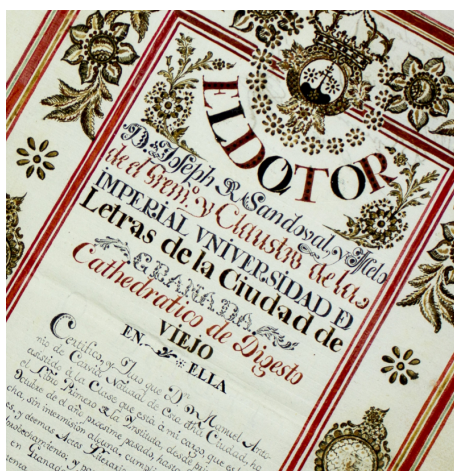 EL DOTOR
Dn. Joseph R. Sandoval, y Melo
de el Grem. y Claustro de la
IMPERIAL VNIVERSIDAD D
Letras de la Ciudad de
GRANADA,
Cathedratico de Digesto
VIEJO
EN ELLA
Certifico, y Juro que Dn. Manuel Anto
nio de Natural de Esta dha. Ciudad, ha
asistido à la Clase que està à mi cargo, que es
el Libro Primero de la Instituta, desde
Octubre de el año proximo pasado, hasta
cha, sin intermision alguna,
s, y demas Actos Literarios
en Granada